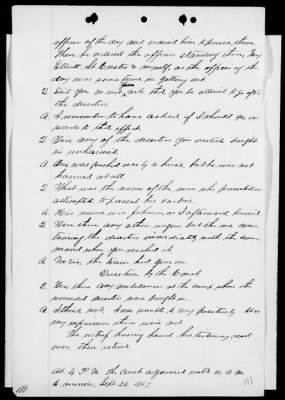 officer of the day and ordered him to pursue them.
Then he ordered the officers standing there, Maj
Elliott, Lt Custer & myself, as the officer of the
day was some time in getting out
2 Did you or not ask that you be allowed to go after
the deserters
A I remember to have asked if I should go or
words to that effect
2 Were any of the deserters you overtook brought
in unharmed
A One was pushed over by a horse, but he was not
harmed at all
2 What was the name of the man who
attempted to present his carbine
A His name was Johnson, as I afterward learned
2 Were there any other wagons but the one con
taining the deserters immediately with the com
mand when you reached it
A No sir, the train had gone on
Question by the Court
2 Were there any ambulances at the camp when the
wounded deserters were brought in
A I think not. I am unable to say positively
my impression there were not
The witness having heard his testimony read
over, then retired
At 4 P.M. the Court adjourned until 10 a m
Sept 20, 1867.
111
111